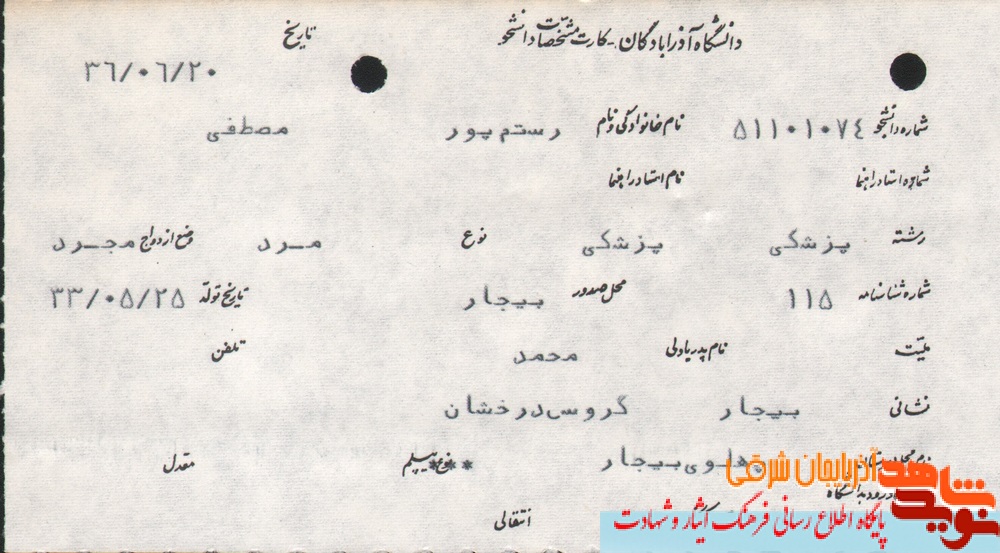 دانشگاه آذرابادگان - کارت مشخصات دانشجو تاریخ
۳۶/۰۶/۲۰
شماره دانشجو ۵۱۱۰۱۰۷۴ نام خانوادگی و نام رستم پور مصطفی
شماره استاد راهنما نام استاد راهنما
رشته پزشکی پزشکی نوع مرد وضع ازدواج مجرد
شماره شناسنامه ۱۱۵ محل صدور بیجار تاریخ تولد ۳۳/۰۵/۲۵
ملیت نام پدر یا ولی محمد تلفن
نشانی بیجار گروس درخشان
پهلوی بیجار نوع دیپلم *** معدل
انتقالی
نوید شاهد آذربایجان شرقی
پایگاه اطلاع رسانی فرهنگ ایثار و شهادت